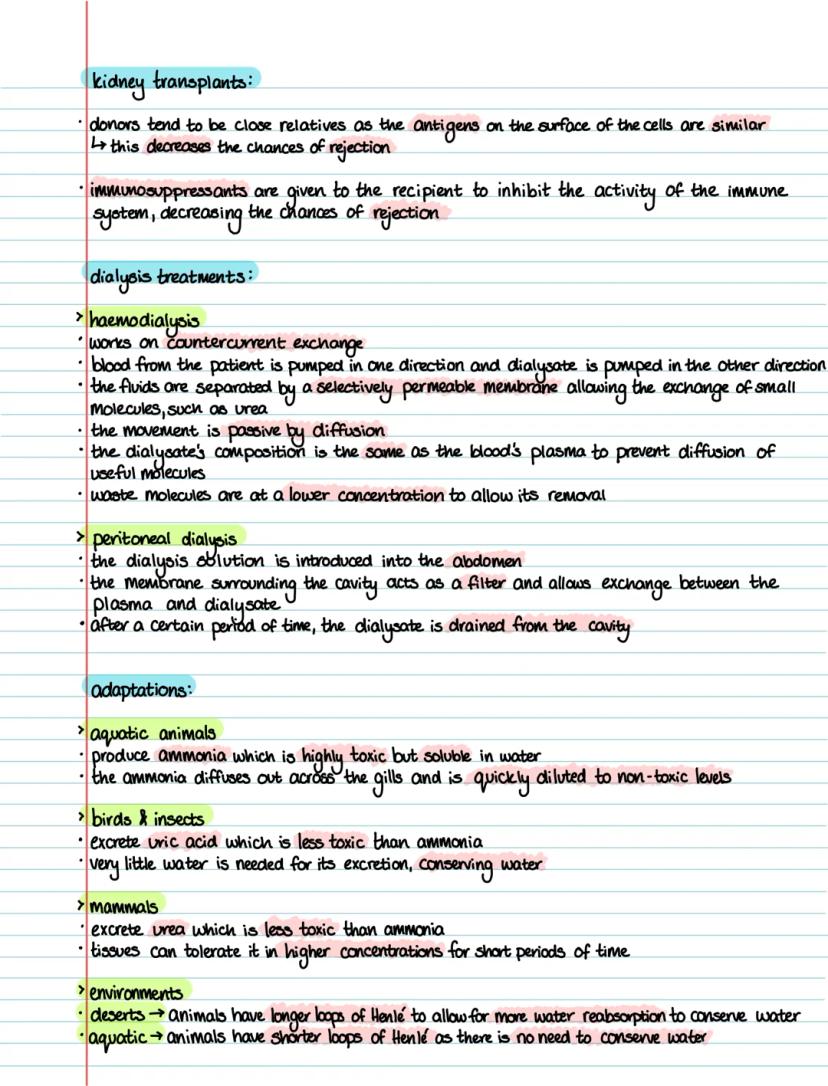 kidney transplants:
· donors tend to be close relatives as the antigens on the surface of the cells are similar
↳ this decreases the chances of rejection
· immunosuppressants are given to the recipient to inhibit the activity of the immune
system, decreasing the chances of rejection
dialysis treatments:
> haemodialysis
· works on countercurrent exchange
· blood from the patient is pumped in one direction and dialysate is pumped in the other direction
· the fluids are separated by a selectively permeable membrane allowing the exchange of small
molecules, such as urea
· the movement is passive by diffusion
· the dialysate's composition is the same as the blood's plasma to prevent diffusion of
useful molecules
· waste molecules are at a lower concentration to allow its removal
> peritoneal dialysis
· the dialysis solution is introduced into the abdomen
· the membrane surrounding the cavity acts as a filter and allows exchange between the
plasma and dialysate
· after a certain period of time, the dialysate is drained from the cavity
adaptations:
> aquatic animals
· produce ammonia which is highly toxic but soluble in water
· the ammonia diffuses out across the gills and is quickly diluted to non-toxic levels
> birds & insects
· excrete uric acid which is less toxic than ammonia
· very little water is needed for its excretion, conserving water
> mammals
· excrete urea which is less toxic than ammonia
· tissues can tolerate it in higher concentrations for short periods of time
> environments
· deserts → animals have longer loops of Henlé to allow for more water reabsorption to conserve water
· aquatic → animals have shorter loops of Henlé as there is no need to conserve water